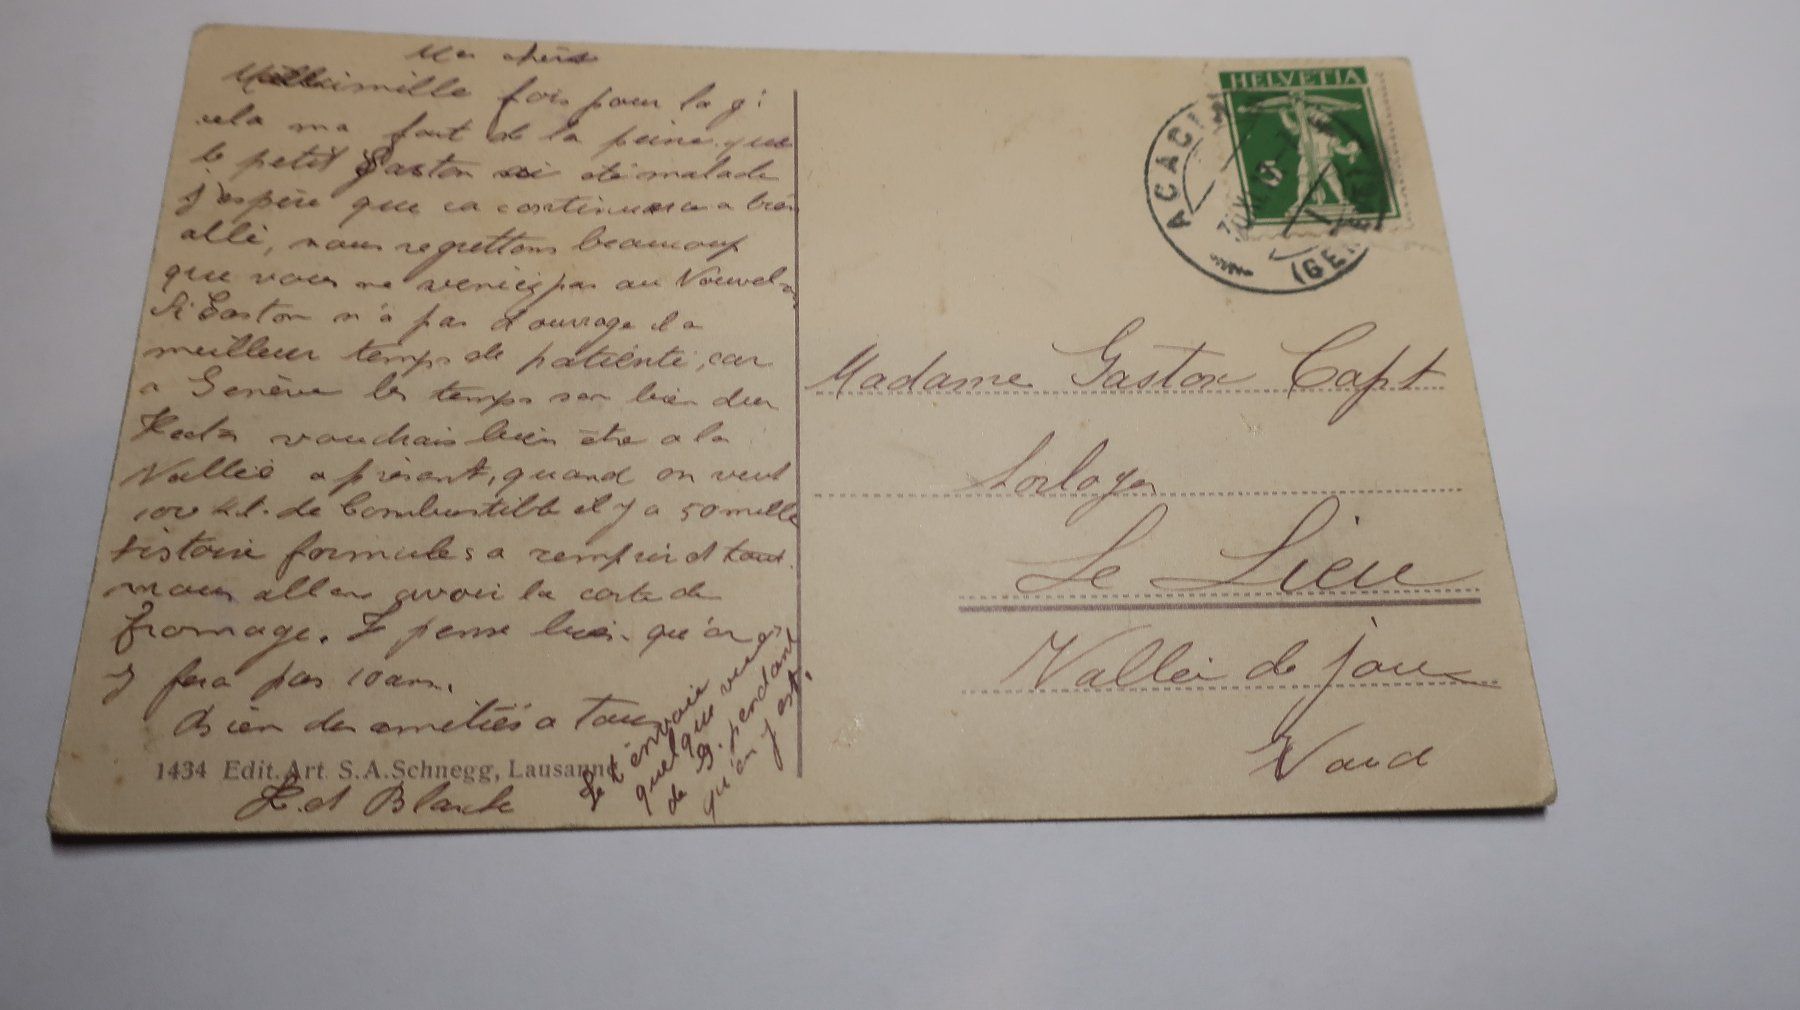 Ma chère
mille fois pour la
cela ma fait de la peine que
le petit Gaston été malade
j'espère que ca continuera a bien
allé, nous regrettons beaucoup
que vous ne veniez pas au Nouvel-an
Si Gaston n'a pas d'ouvrage il a
meilleur temps de patienté, car
a Genève les temps son bien dur
voudrais bien être a la
Vallée a présent, quand on veut
100 de Combustible il y a 50 mille
histoire formules a remplir et tout.
nous allons avoir la carte de
fromage. Je pense bien qu'on
y fera pas 10 ans.
Bien des amitiés a tous
et Blanche
Je t'envoie
quelque vues
de G. pendant
qu'on y est.
1434 Edit. Art. S.A. Schnegg, Lausanne
HELVETIA
ACACIAS
(GENÈVE)
Madame Gaston Capt
horloger
Le Lieu
Vallée de joux
Vaud